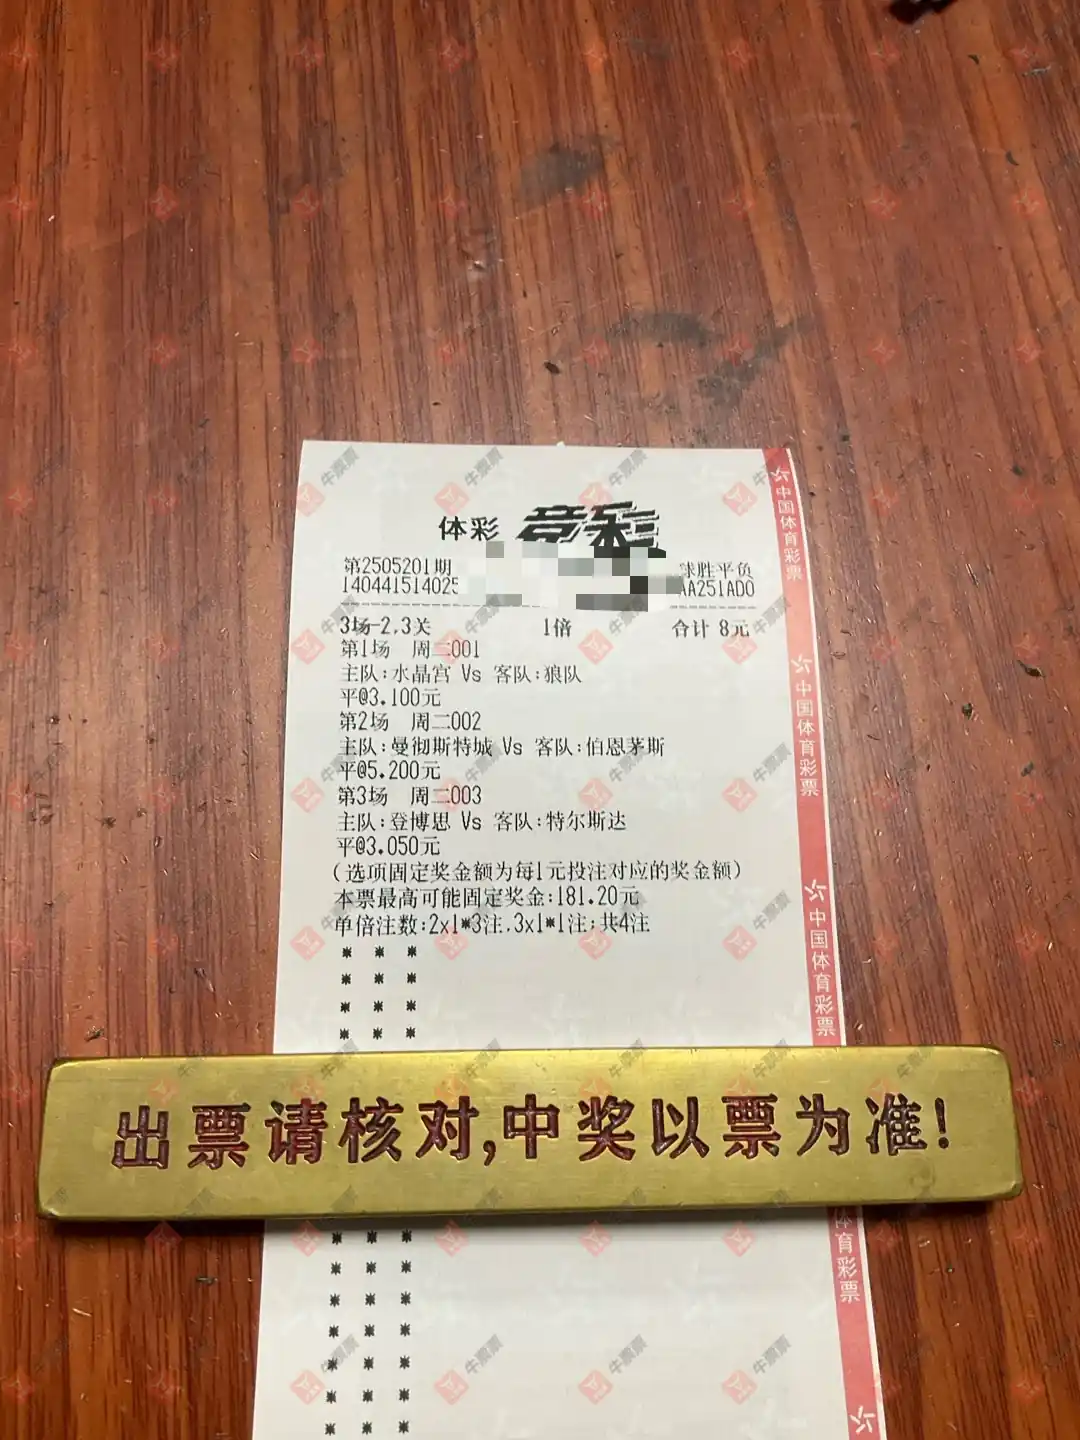 体彩 竞彩
第2505201期 球胜平负
14044151402 AA251AD0
3场-2,3关 1倍 合计 8元
第1场 周二001
主队:水晶宫 Vs 客队:狼队
平@3.100元
第2场 周二002
主队:曼彻斯特城 Vs 客队:伯恩茅斯
平@5.200元
第3场 周二003
主队:登博思 Vs 客队:特尔斯达
平@3.050元
(选项固定奖金额为每1元投注对应的奖金额)
本票最高可能固定奖金:181.20元
单倍注数:2x1*3注,3x1*1注;共4注
出票请核对,中奖以票为准!
中国体育彩票
中国体育彩票
中国体育彩票
体育彩票
牛票票